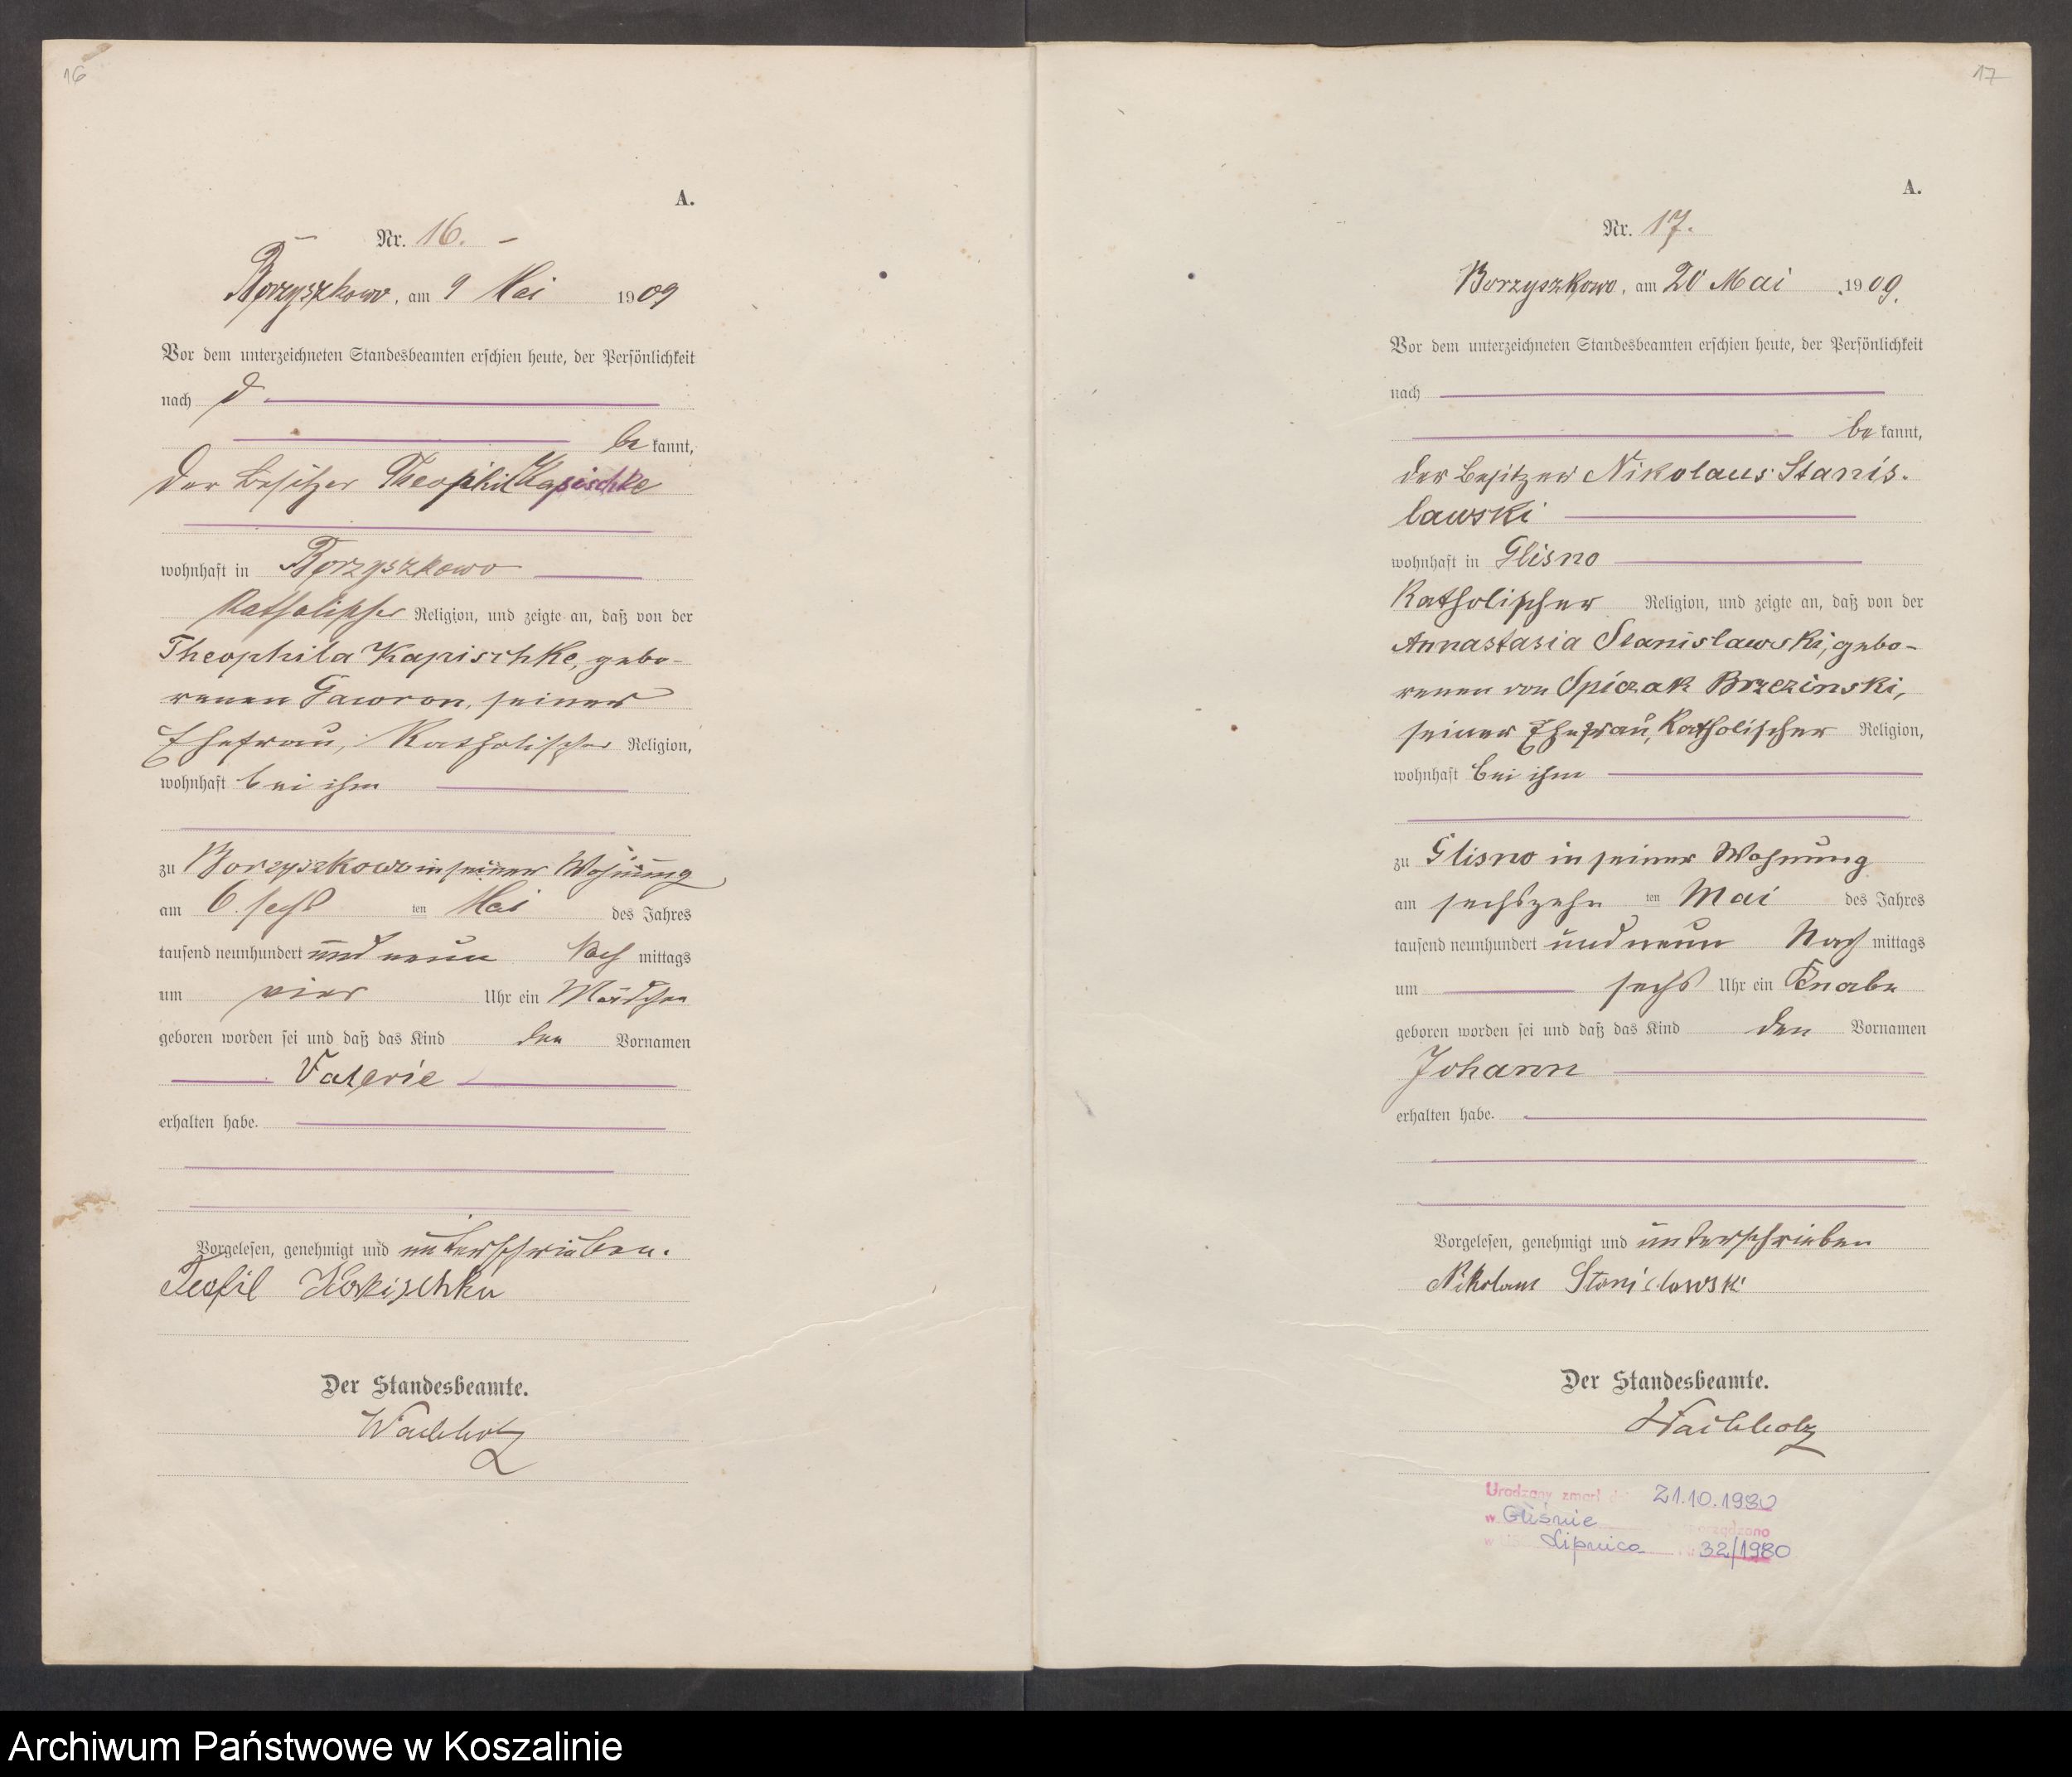 16
A.
Nr. 16.
Borzyszkowo, am 9 Mai 1909
Vor dem unterzeichneten Standesbeamten erschien heute, der Persönlichkeit
nach
be kannt,
der Besitzer Theophil Kapischke
wohnhaft in Borzyszkowo
Katholischer Religion, und zeigte an, daß von der
Theophila Kapischke, gebo-
renen Gawron, seiner
Ehefrau, Katholischer Religion,
wohnhaft bei ihm
zu Borzyszkowo in seiner Wohnung
am 6. sechs ten Mai des Jahres
tausend neunhundert und neun Nach mittags
um vier Uhr ein Mädchen
geboren worden sei und daß das Kind den Vornamen
Valerie
erhalten habe.
Vorgelesen, genehmigt und unterschrieben.
Teofil
Der Standesbeamte.
Wachholz
17
A.
Nr. 17.
Borzyszkowo, am 20 Mai 1909.
Vor dem unterzeichneten Standesbeamten erschien heute, der Persönlichkeit
nach
be kannt,
der Besitzer Nikolaus Stanis-
lawski
wohnhaft in Glisno
Katholischer Religion, und zeigte an, daß von der
Annastasia Stanislawski, gebo-
renen von Spiczak Brzezinski,
seiner Ehefrau, Katholischer Religion,
wohnhaft bei ihm
zu Glisno in seiner Wohnung
am sechszehn ten Mai des Jahres
tausend neunhundert und neun Nach mittags
um sechs Uhr ein Knabe
geboren worden sei und daß das Kind den Vornamen
Johann
erhalten habe.
Vorgelesen, genehmigt und unterschrieben
Nikolaus Stanislawski
Der Standesbeamte.
Wachholz
Urodzony zmarł 21.10.1980
w Gliśnie
Lipnica 32/1980
Archiwum Państwowe w Koszalinie